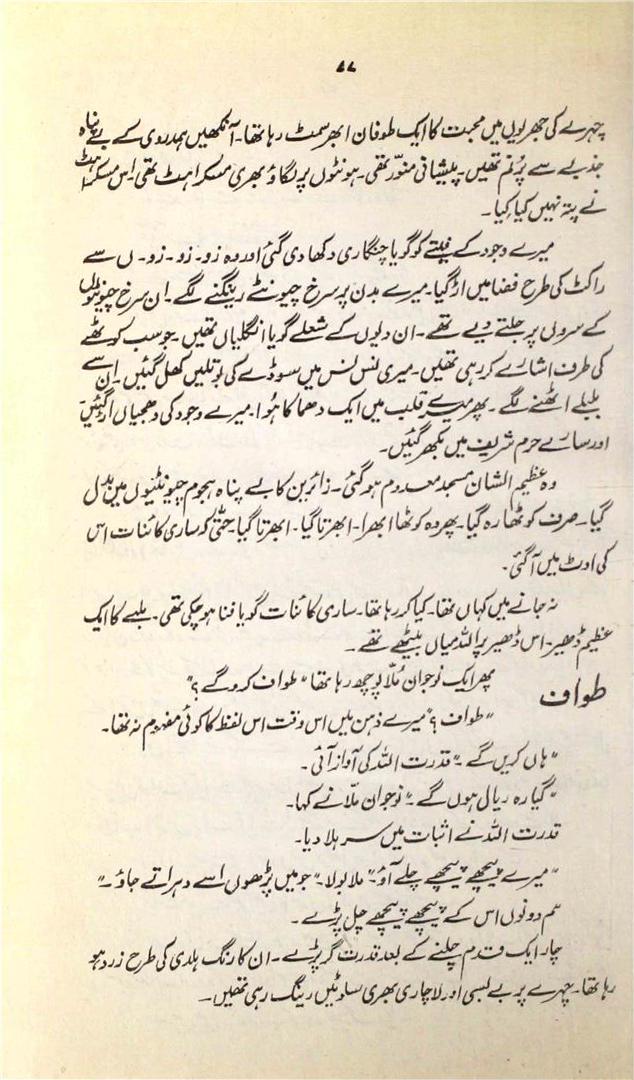 ۷۷
چہرے کی جھریوں میں محبت کا ایک طوفان ابھر سمٹ رہا تھا۔ آنکھیں ہمدردی کے بے پناہ
جذبے سے پُرنم تھیں۔ پیشانی منوّر تھی۔ ہونٹوں پر لگاؤ بھری مسکراہٹ تھی۔ اس مسکراہٹ
نے پتہ نہیں کیا کیا۔
میرے وجود کے فیلتے کو گویا چنگاری دکھا دی گئی اور وہ زو۔ زو۔ زو۔ ں سے
راکٹ کی طرح فضا میں اڑ گیا۔ میرے بدن پر سرخ چیونٹے رینگنے لگے۔ ان سرخ چیونٹوں
کے سروں پر جلتے دیے تھے۔ ان دیوں کے شعلے گویا انگلیاں تھیں۔ جو سب کوٹھے
کی طرف اشارے کر رہی تھیں۔ میری نس نس میں سوڈے کی بوتلیں کھل گئیں۔ ان سے
بلبلے اٹھنے لگے۔ پھر میرے قلب میں ایک دھماکا ہُوا۔ میرے وجود کی دھجیاں اڑ گئیں
اور سارے حرم شریف میں بکھر گئیں۔
وہ عظیم الشان مسجد معدوم ہو گئی۔ زائرین کا بے پناہ ہجوم چیونٹیوں میں بدل
گیا۔ صرف کوٹھا رہ گیا۔ پھر وہ کوٹھا ابھرا۔ ابھرتا گیا۔ ابھرتا گیا۔ حتّٰی کہ ساری کائنات اس
کی اوٹ میں آ گئی۔
نہ جانے میں کہاں تھا۔ کیا کر رہا تھا۔ ساری کائنات گویا فنا ہو چکی تھی۔ ملبے کا ایک
عظیم ڈھیر۔ اس ڈھیر پر اللہ میاں بیٹھے تھے۔
طواف
پھر ایک نوجوان مُلّا پوچھ رہا تھا "طواف کرو گے؟"
"طواف؟" میرے ذہن میں اس وقت اس لفظ کا کوئی مفہوم نہ تھا۔
"ہاں کریں گے۔" قدرت اللہ کی آواز آئی۔
"گیارہ ریال ہوں گے۔" نوجوان ملّا نے کہا۔
قدرت اللہ نے اثبات میں سر ہلا دیا۔
"میرے پیچھے پیچھے چلے آؤ" ملا بولا۔ "جو میں پڑھوں اسے دہراتے جاؤ۔"
ہم دونوں اس کے پیچھے پیچھے چل پڑے۔
چار ایک قدم چلنے کے بعد قدرت گر پڑے۔ ان کا رنگ ہلدی کی طرح زرد ہو
رہا تھا۔ چہرے پر بے بسی اور لاچاری بھری سلوٹیں رینگ رہی تھیں۔